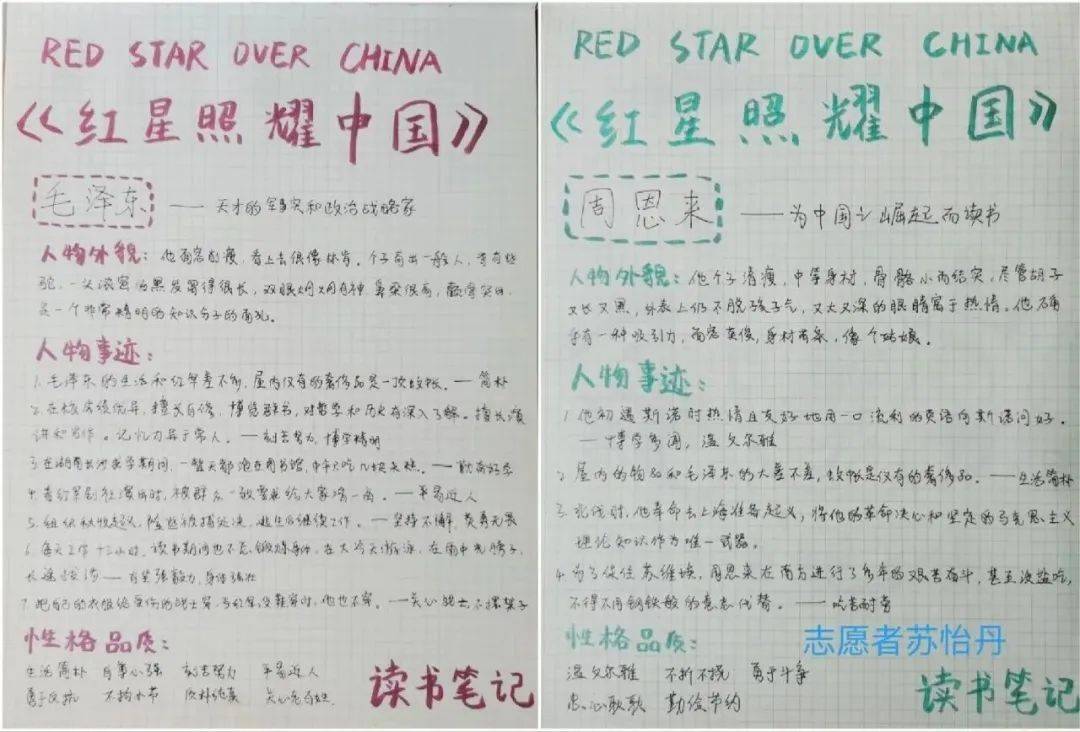 RED STAR OVER CHINA
《红星照耀中国》
毛泽东 —— 天才的军事家和政治战略家
人物外貌：他面容瘦，看上去很像林肯。个子高出一般人，背有些
驼，一头浓密的黑发留得很长，双眼炯炯有神，鼻梁很高，颧骨突出，
是一个非常精明的知识分子的面孔。
人物事迹：
1.毛泽东的生活和红军差不多，屋内仅有的奢侈品是一顶蚊帐。——简朴
2.在校成绩优异，擅长自修，博览群书，对哲学和历史有深入了解。擅长演
讲和写作。记忆力异于常人。——刻苦努力，博学精明
3.在湖南长沙求学期间，一整天都泡在图书馆，中午只吃几块米糕。——勤奋好学
4.看红军剧社演出时，被群众一致要求给大家演一曲。——平易近人
5.组织秋收起义，险些被捕处决，逃生后继续工作。——坚持不懈，英勇无畏
6.每天工作十三小时，读书期间也不忘锻炼身体，在大冷天游泳，在雨中光膀子，
长途跋涉——有坚强毅力，身体强壮
7.把自己的衣服给受伤的战士穿，当红军没鞋穿时，他也不穿。——关心战士，不摆架子
性格品质：
生活简朴 自尊心强 刻苦努力 平易近人
勇于反抗 不拘小节 质朴纯真 关心老百姓
读书笔记
RED STAR OVER CHINA
《红星照耀中国》
周恩来 ——为中国之崛起而读书
人物外貌：他个子清瘦，中等身材，骨骼小而结实，尽管胡子
又长又黑，外表上仍不脱孩子气，又大又深的眼睛富于热情。他确
乎有一种吸引力，面容英俊，身材苗条，像个姑娘。
人物事迹：
1.他初遇斯诺时热情且友好地用一口流利的英语向斯诺问好。
——博学多闻，温文尔雅
2.屋内的物品和毛泽东的大差不差，蚊帐是仅有的奢侈品。——生活简朴
3.北伐时，他奉命去上海准备起义，将他的革命决心和坚定的马克思主义
理论知识作为唯一武器。
4.为了保住苏维埃，周恩来在南方进行了多年的艰苦奋斗，甚至没盐吃，
不得不用钢铁般的意志代替。——吃苦耐劳
性格品质：
志愿者苏怡丹
温文尔雅 不折不挠 勇于斗争
忠心耿耿 勤俭节约
读书笔记